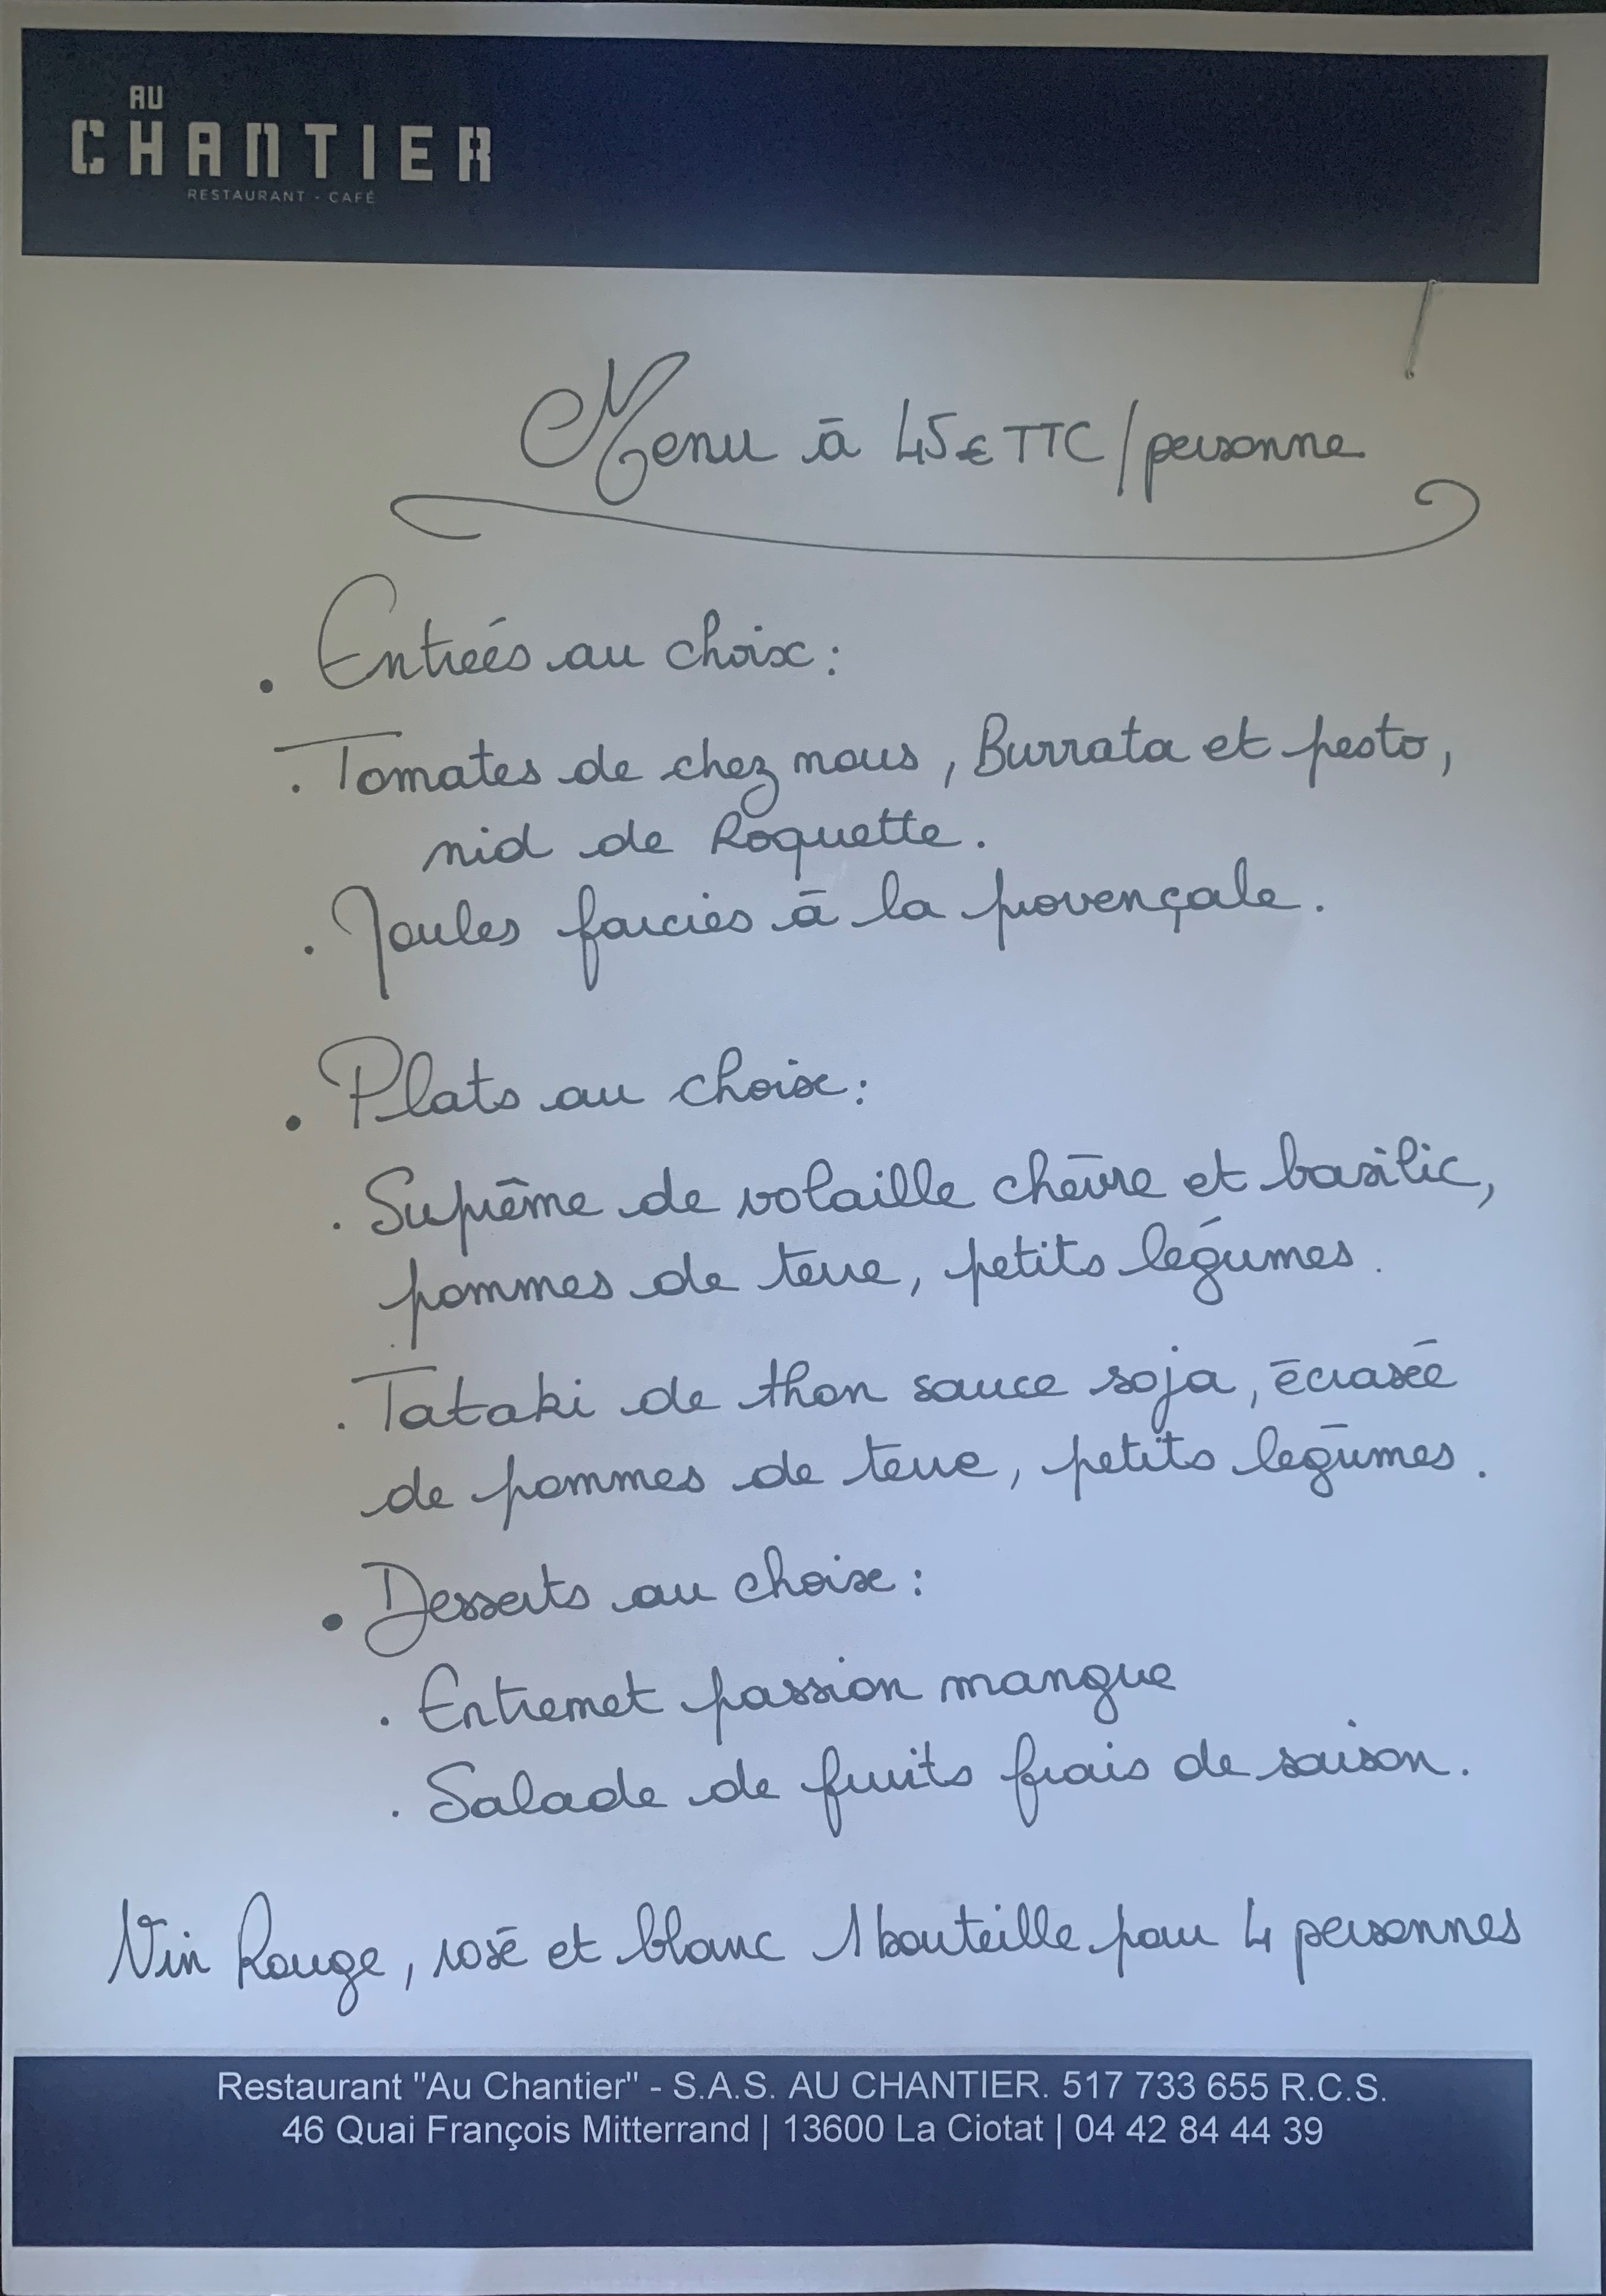 AU
CHANTIER
RESTAURANT - CAFÉ
Menu à 45€ TTC / personne
. Entrées au choix :
. Tomates de chez nous, Burrata et pesto,
nid de Roquette.
. Moules farcies à la provençale.
. Plats au choix :
. Suprême de volaille chèvre et basilic,
pommes de terre, petits légumes.
. Tataki de thon sauce soja, écrasée
de pommes de terre, petits légumes.
. Desserts au choix :
. Entremet passion mangue
. Salade de fruits frais de saison.
Vin Rouge, rosé et blanc 1 bouteille pour 4 personnes
Restaurant "Au Chantier" - S.A.S. AU CHANTIER. 517 733 655 R.C.S.
46 Quai François Mitterrand | 13600 La Ciotat | 04 42 84 44 39